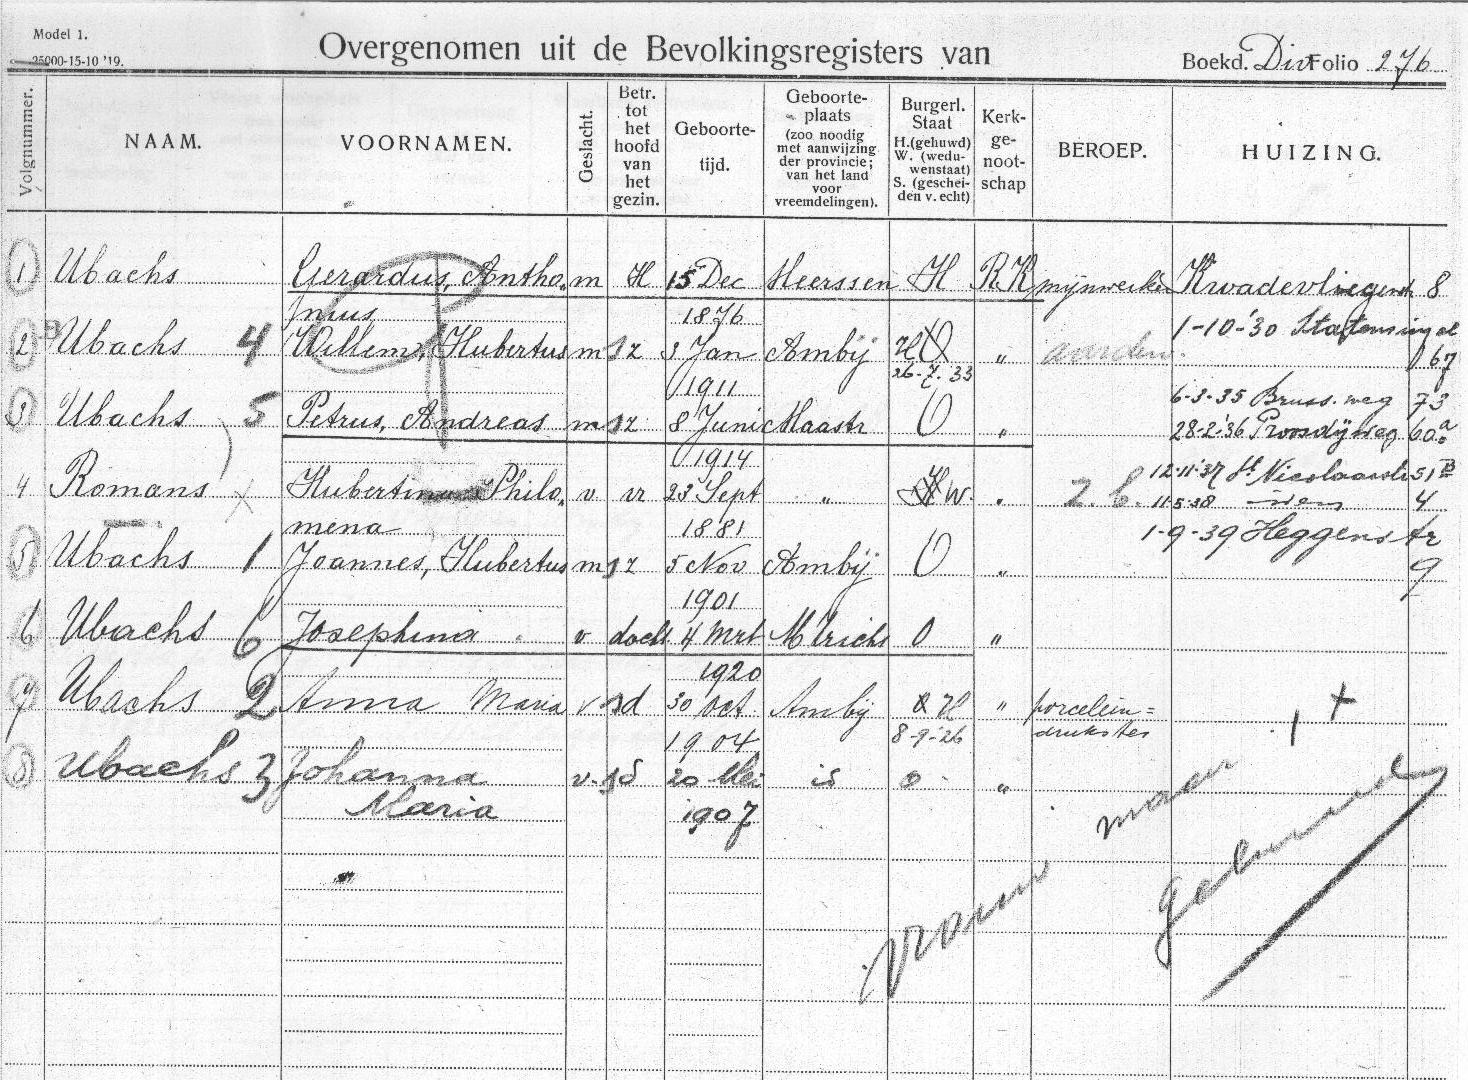 Model 1.
25000-15-10 '19.
Overgenomen uit de Bevolkingsregisters van
Boekd. Div Folio 276
Volgnummer.
NAAM.
VOORNAMEN.
Geslacht.
Betr. tot het hoofd van het gezin.
Geboorte-
tijd.
Geboorte-
plaats
(zoo noodig
met aanwijzing
der provincie;
van het land
voor
vreemdelingen).
Burgerl.
Staat
H.(gehuwd)
W. (wedu-
wenstaat)
S. (geschei-
den v. echt)
Kerk-
ge-
noot-
schap
BEROEP.
HUIZING.
1 Ubachs Gerardus, Antho„ m H 15 Dec Meerssen H R.K mijnwerker Kwadevliegenstr 8
nius 1876 1-10-'30 Statensingel
2 B Ubachs 4 Willem, Hubertus m s z 3 Jan Ambij H O „ aarden. 67
1911 26-7-33
6-3-35 Bruss. weg 73
3 Ubachs 5 Petrus, Andreas m s z 8 Juni Maastr O „ 28-2-'36 Proosdijweg 60a
1914
4 Romans x Hubertina Philo„ v vr 23 Sept „ H W. „ Z. b. 12-11-'37 St. Nicolaasstr 51B
11-5-38 idem 4
mena 1881 1-9-39 Heggenstr
9
5 Ubachs 1 Joannes, Hubertus m s z 5 Nov Ambij O „
1901
6 Ubachs 6 Josephina v docht 4 Mrt Mtricht O „
1920
7 Ubachs 2 Anna Maria v s d 30 Oct. Amby O H „ porcelein=
1904 8-9-26 drukster
1 +
8 Ubachs 3 Johanna v. s d 20 Mei id O „
Maria 1907
vrouw maar gehuwd